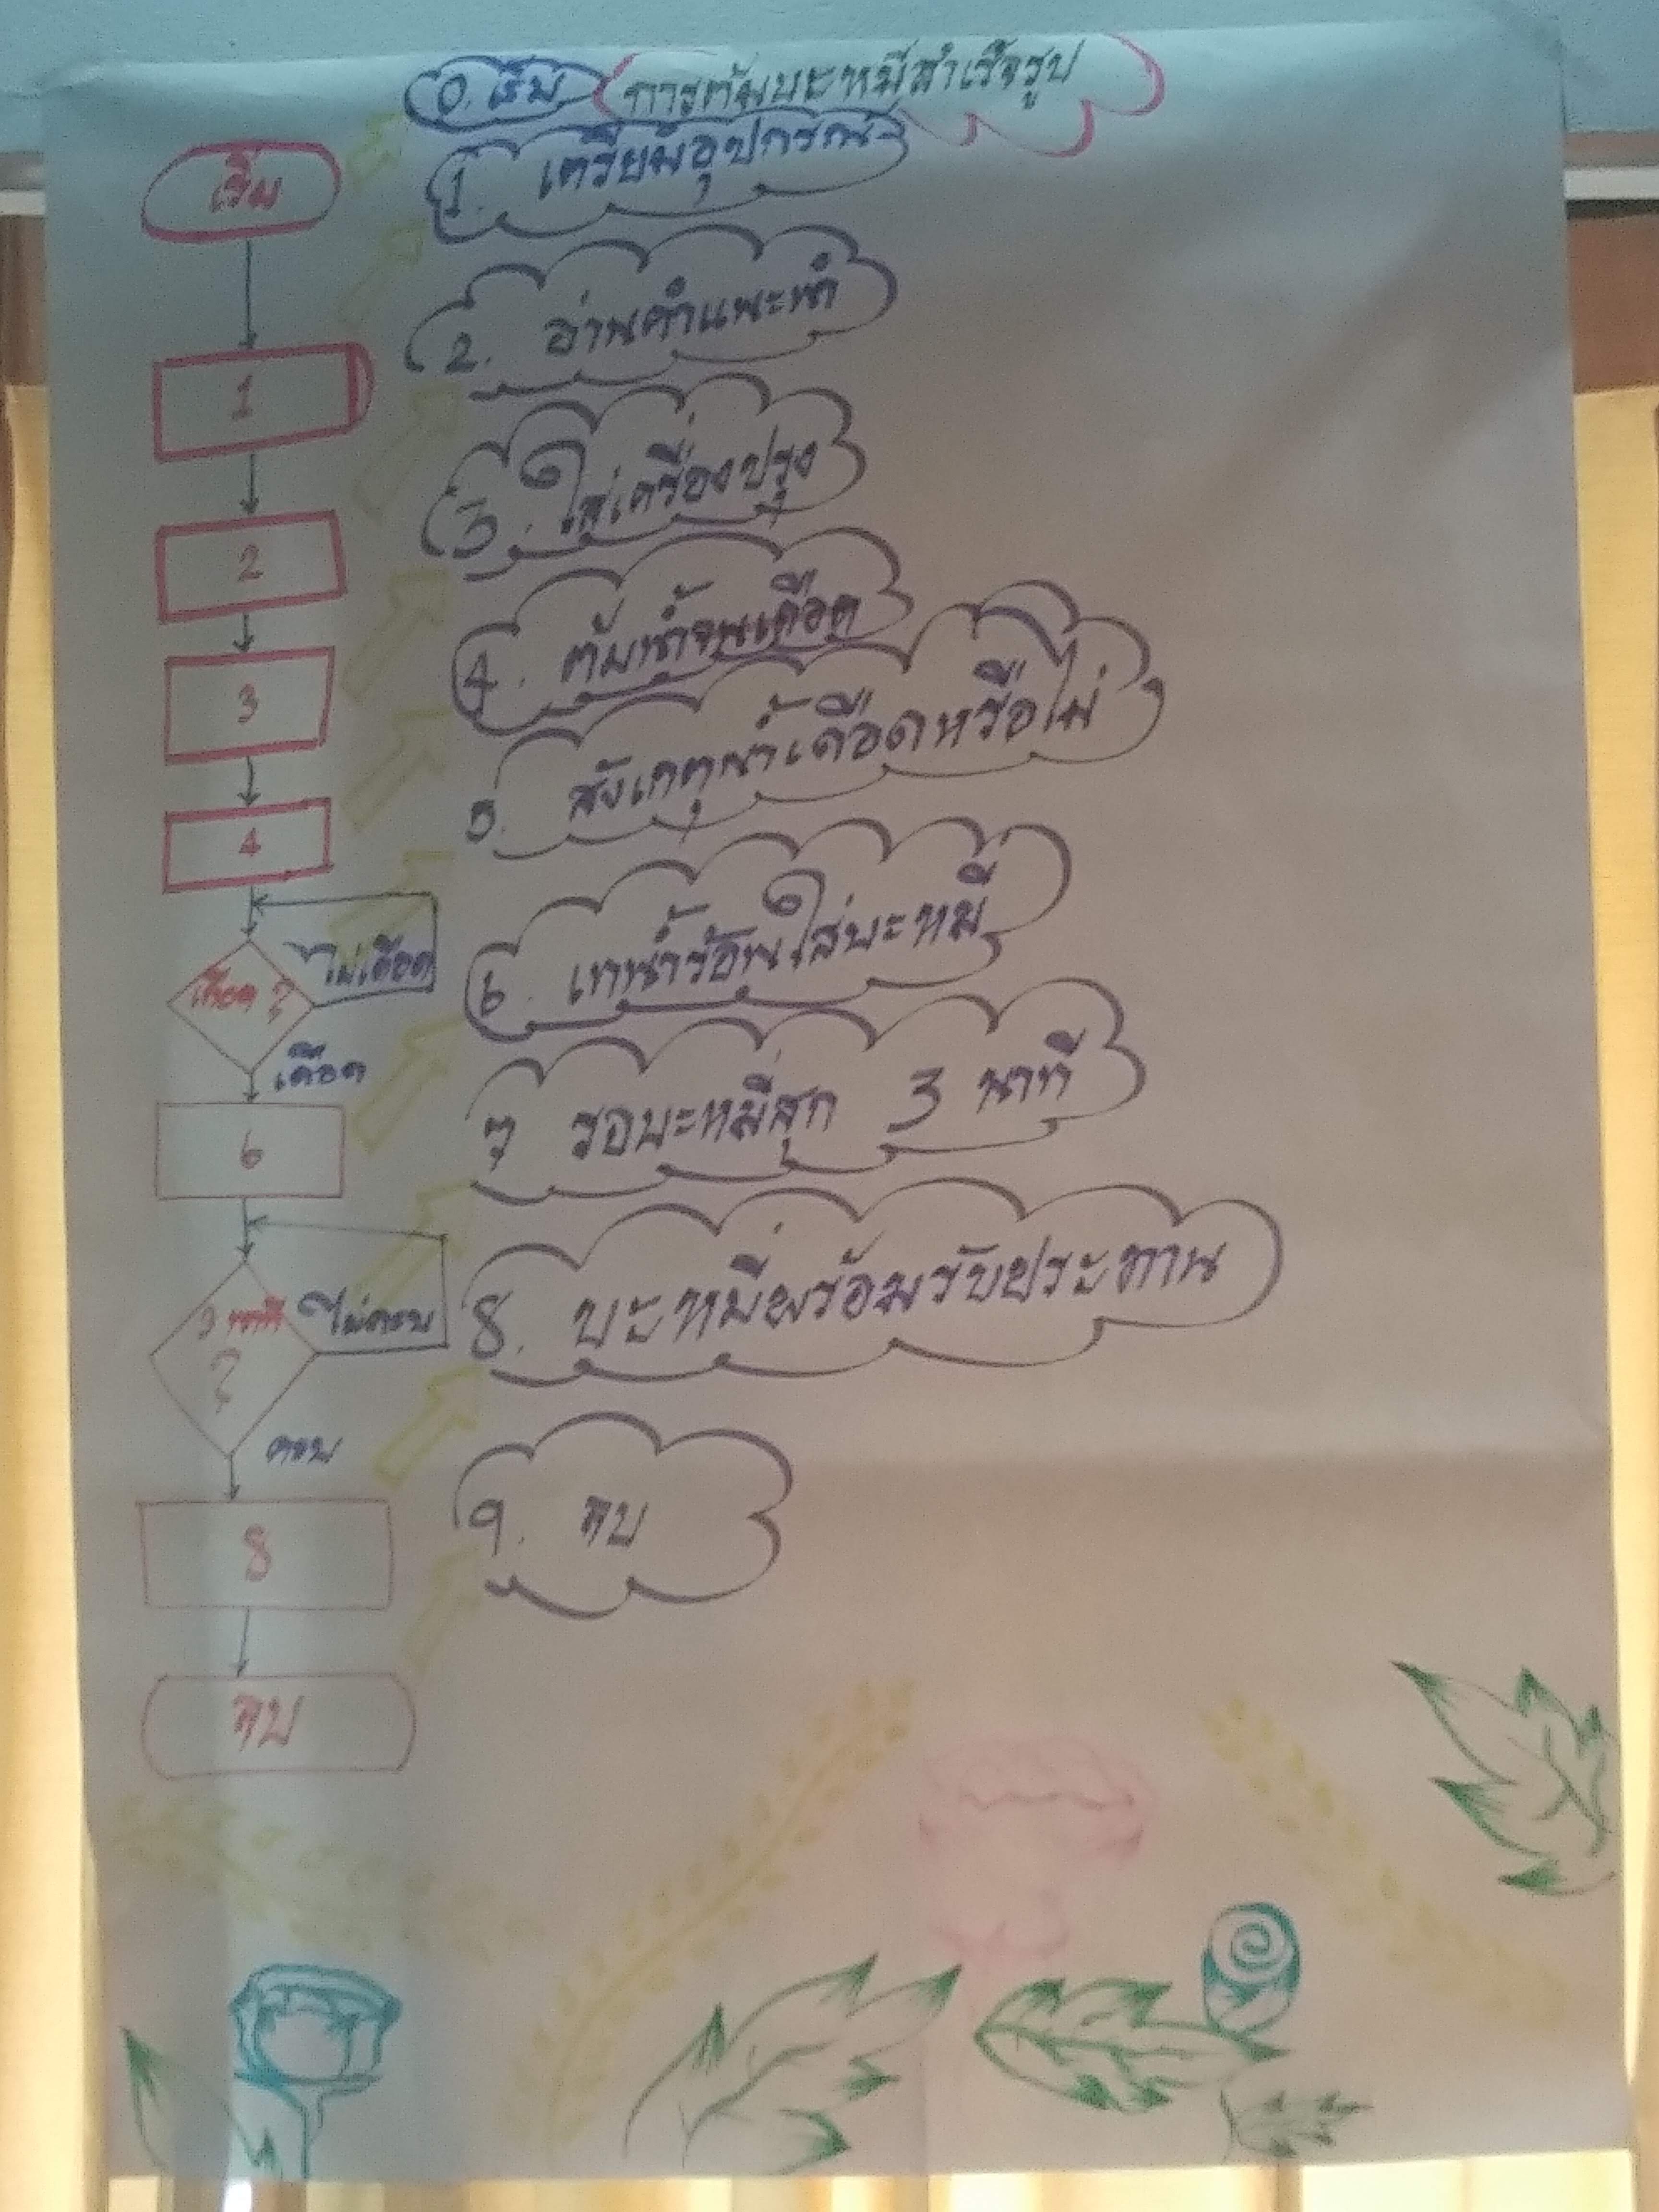 0. เริ่ม การต้มบะหมี่สำเร็จรูป
1. เตรียมอุปกรณ์
2. อ่านคำแนะนำ
3. ใส่เครื่องปรุง
4. ต้มน้ำจนเดือด
5. สังเกตุน้ำเดือดหรือไม่
6. เทน้ำร้อนใส่บะหมี่
7 รอบะหมี่สุก 3 นาที
8. บะหมี่พร้อมรับประทาน
9. จบ
เริ่ม
1
2
3
4
เดือด ?
ไม่เดือด
เดือด
6
3 นาที
?
ไม่ครบ
ครบ
8
จบ